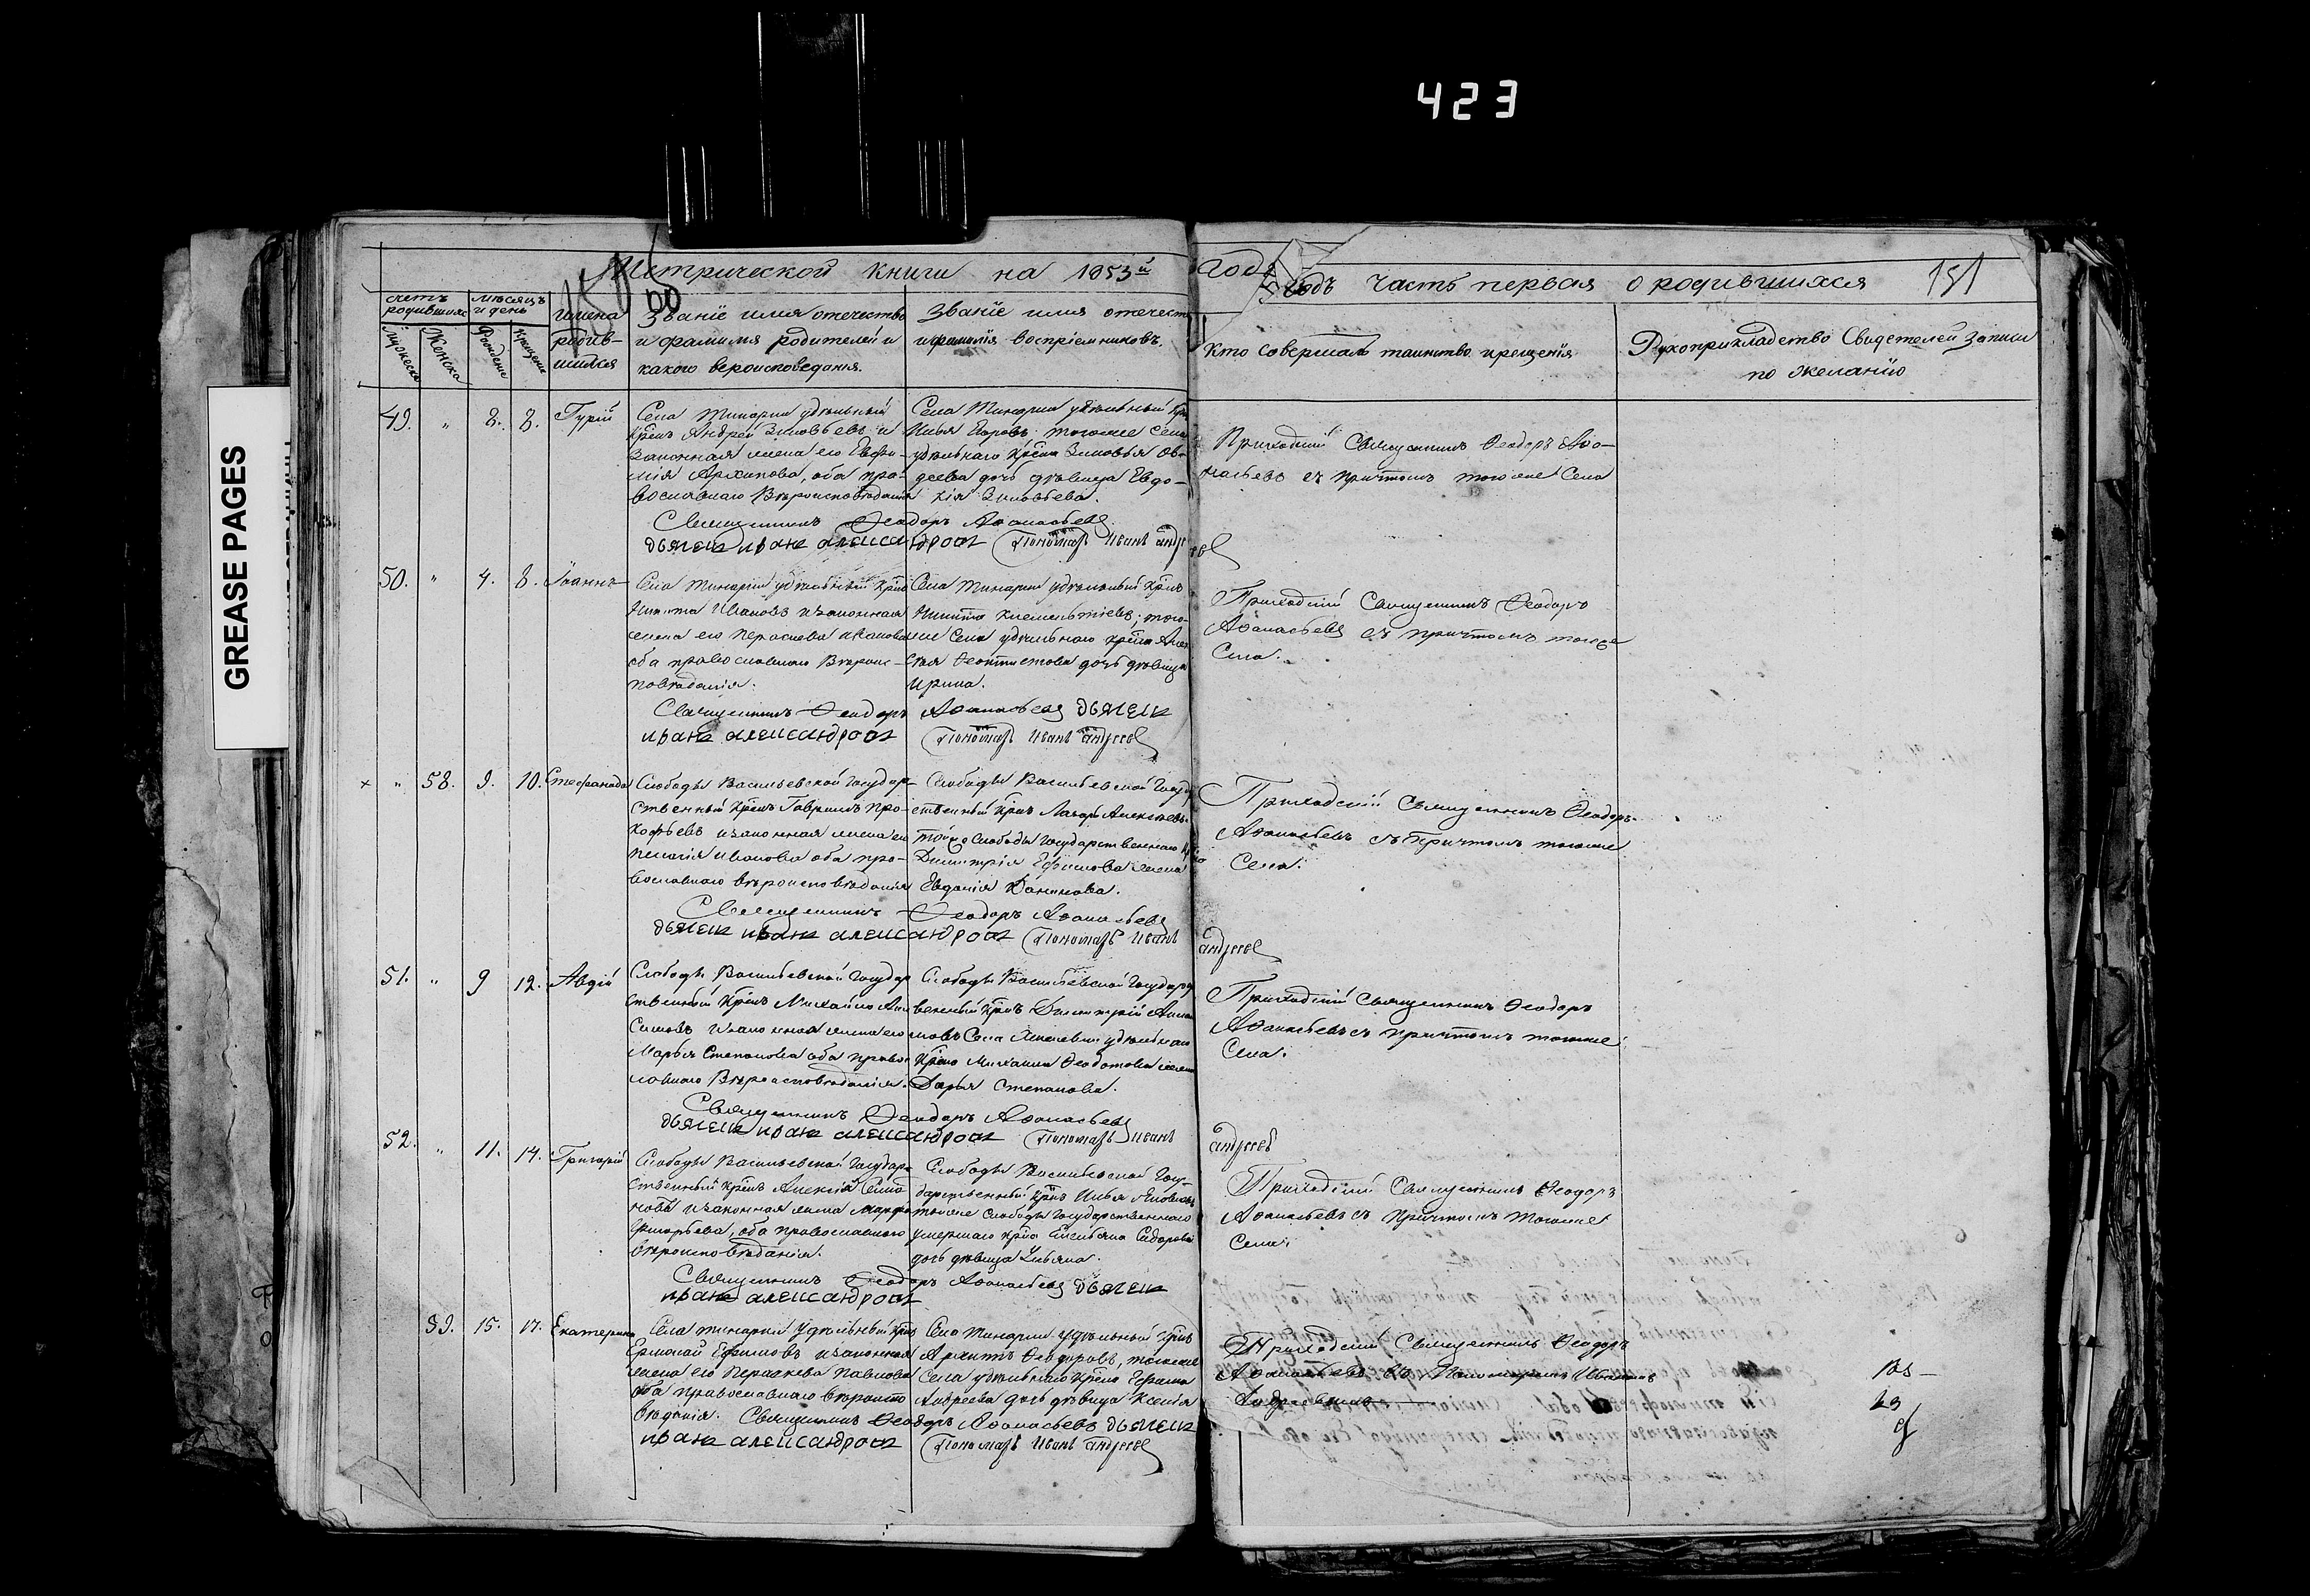 423
GREASE PAGES
Метрической книги на 1853й
годъ часть первая о родившихся 151
счетъ родившихся
мѣсяцъ и день
имена родив-шихся
Мужеска
Женска
Рожденіе
Крещеніе
Званіе имя отечество
и фамилія родителей и
какого вероисповеданія.
Званіе имя отечест
и фамилія воспріемниковъ.
Кто совершалъ таинство крещенія
Рукоприкладство Свидетелей записи
по желанію
49. " 8. 8. Гурій
Села Тинарки удѣльный
Крѣнъ Андрей Зиновьевъ и
Законная жена его Евфи-
мія Архипова, оба пра-
вославнаго Вѣроисповѣданія
Села Тинарки удѣльный
Илья Егоровъ тогоже Села
удѣльнаго Крѣна Зиновья
деева дочь дѣвица Евдо-
кія Зиновьева.
Приходскій Священникъ Ѳеодоръ Аѳа-
насьевъ съ причтомъ тогоже Села
Священникъ Ѳеодоръ Аѳанасьевъ
дьячекъ иванъ александровъ Пономарь Иванъ андреевъ
50. " 4. 8. Іоаннъ
Села Тинарки удѣльный Крѣнъ
Никита Ивановъ и законная
жена его Параскева иванова
оба православнаго Вѣроис-
повѣданія.
Села Тинарки удѣльный Крѣнъ
Никита Клементіевъ; того-
же Села удѣльнаго крѣна
Ѳеоктистова дочь дѣвица
Ирина.
Приходскій Священникъ Ѳеодоръ
Аѳанасьевъ съ причтомъ тогоже
Села.
Священникъ Ѳеодоръ Аѳанасьевъ дьячекъ
иванъ александровъ Пономарь Иванъ андреевъ
× " 58. 9. 10. Стефанида
Слободы Васильевской государ-
ственный крѣнъ Гавриилъ Про-
кофьевъ и законная жена его
Пелагія иванова оба пра-
вославнаго вѣроисповѣданія
Слободы Васильевской Госуд
ственный крѣнъ Лазарь Алексѣевъ
тойже Слободы государственнаго
Димитрія Ефимова жена
Евдокія Данилова.
Приходскій Священникъ Ѳеодоръ
Аѳанасьевъ съ Причтомъ тогоже
Села.
Священникъ Ѳеодоръ Аѳанасьевъ
дьячекъ иванъ александровъ Пономарь Иванъ андреевъ
51. " 9 12. Авдій
Слободы Васильевской государ
ственный Крѣнъ Михайло
Симовъ и законная жена его
Марья Степанова оба право-
славнаго Вѣроисповѣданія.
Слободы Васильевской государст
венный крѣнъ Димитрій
новъ Села удѣльнаго
Крѣна Михаила Ѳеодотова жена
Дарья Степанова.
Приходскій Священникъ Ѳеодоръ
Аѳанасьевъ съ причтомъ тогоже
Села.
Священникъ Ѳеодоръ Аѳанасьевъ
дьячекъ иванъ александровъ Пономарь Иванъ андреевъ
52. " 11. 14. Григорій
Слободы Васильевской Государ-
ственный крѣнъ Алексѣй Симо
новъ и законная жена Марфа
Григорьева, оба православнаго
вѣроисповѣданія.
Слободы Васильевской Госу-
дарственный крѣнъ Илья Яковлевъ
тойже Слободы Государственнаго
умершаго крѣна Емельяна Сидорова
дочь дѣвица Ульяна.
Приходскій Священникъ Ѳеодоръ
Аѳанасьевъ съ причтомъ тогоже
Села.
Священникъ Ѳеодоръ Аѳанасьевъ дьячекъ
иванъ александровъ
59. 15. 17. Екатерина
Села тинарки Удѣльный крѣнъ
Ермолай Ефимовъ и законная
жена его Параскева Павлова
оба православнаго вѣроиспо
вѣданія.
Села Тинарки удѣльный крѣнъ
Архипъ Ѳеодоровъ, тогоже
Села удѣльнаго крѣна Герасима
Андреева дочь дѣвица Ксенія
Приходскій Священникъ Ѳеодоръ
Аѳанасьевъ съ Пономаремъ Иваномъ
Андреевымъ
Священникъ Ѳеодоръ Аѳанасьевъ дьячекъ
иванъ александровъ Пономарь Иванъ андреевъ